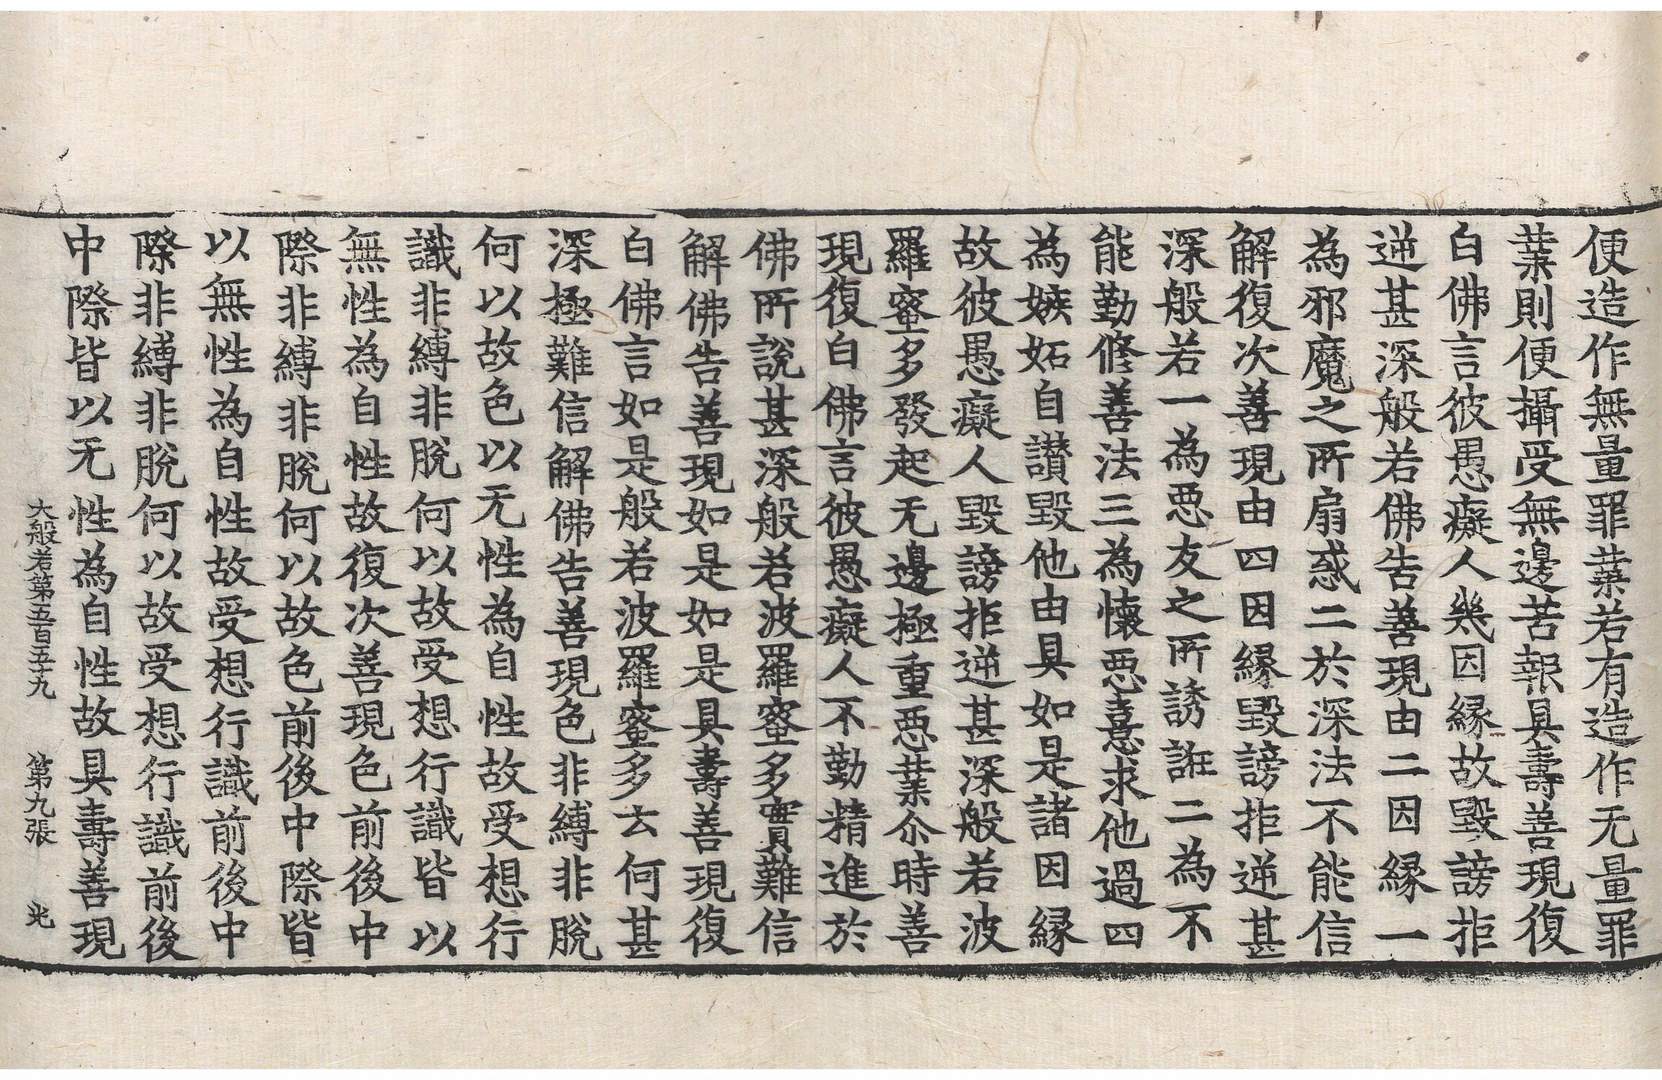 便造作無量罪葉若有造作无量罪
葉則便攝受無邊苦報具壽善現復
白佛言彼愚癡人幾因縁故毀謗拒
逆甚深般若佛告善現由二因縁一
為邪魔之所扇惑二於深法不能信
解復次善現由四因縁毀謗拒逆甚
深般若一為惡友之所誘誑二為不
能勤修善法三為懷惡憙求他過四
為嫉妬自讃毀他由具如是諸因縁
故彼愚癡人毀謗拒逆甚深般若波
羅蜜多發起无邊極重惡葉尒時善
現復白佛言彼愚癡人不勤精進於
佛所說甚深般若波羅蜜多實難信
解佛告善現如是如是具壽善現復
白佛言如是般若波羅蜜多云何甚
深極難信解佛告善現色非縛非脫
何以故色以无性為自性故受想行
識非縛非脫何以故受想行識皆以
無性為自性故復次善現色前後中
際非縛非脫何以故色前後中際皆
以無性為自性故受想行識前後中
際非縛非脫何以故受想行識前後
中際皆以无性為自性故具壽善現
大般若第五百五十九 第九張 光